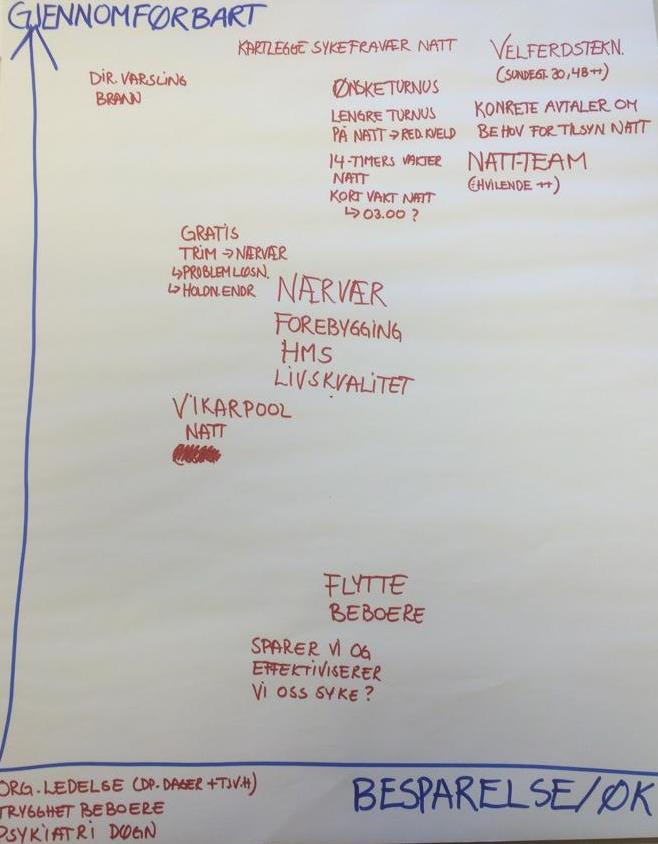 GJENNOMFØRBART
KARTLEGGE SYKEFRAVÆR NATT
VELFERDSTEKN.
(SUNDEGT. 30, 48 ++)
DIR. VARSLING
BRANN
ØNSKETURNUS
LENGRE TURNUS
PÅ NATT → RED. KVELD
KONKRETE AVTALER OM
BEHOV FOR TILSYN NATT
14-TIMERS VAKTER
NATT
KORT VAKT NATT
↳ 03.00 ?
NATT-TEAM
(HVILENDE ++)
GRATIS
TRIM → NÆRVÆR
↳ PROBLEMLØSN.
↳ HOLDN.ENDR
NÆRVÆR
FOREBYGGING
HMS
LIVSKVALITET
VIKARPOOL
NATT
FLYTTE
BEBOERE
SPARER VI OG
EFFEKTIVISERER
VI OSS SYKE ?
ORG. LEDELSE (DP. DAGER + TJV.H)
TRYGGHET BEBOERE
PSYKIATRI DØGN
BESPARELSE/ØK